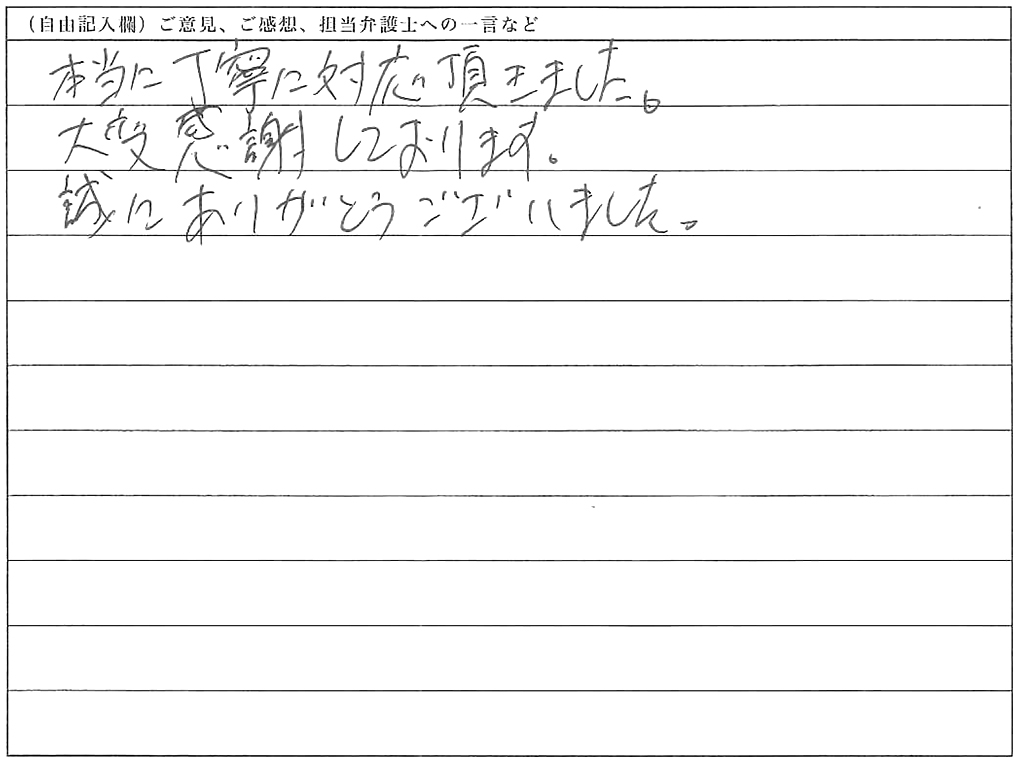 （自由記入欄）ご意見、ご感想、担当弁護士への一言など
本当に丁寧に対応頂きました。
大変感謝しております。
誠にありがとうございました。